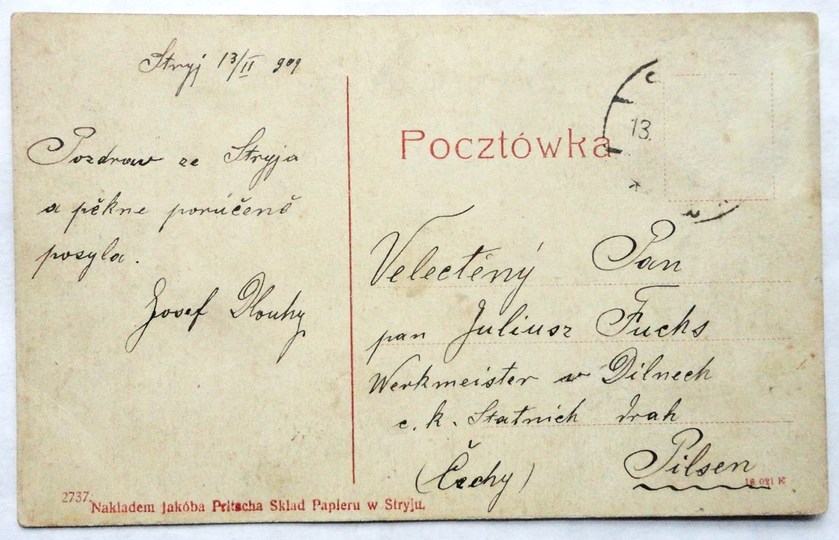 Stryj 13/II 909
Pozdraw ze Stryja
a pěkne porúčeně
posyla.
Josef Dlouhy
Pocztówka
13.
Velectěný Pan
pan Juliusz Fuchs
Werkmeister w Dílnech
c. k. Statnich drah
(Čechy) Pilsen
2737. Nakładem Jakóba Pritscha Skład Papieru w Stryju.